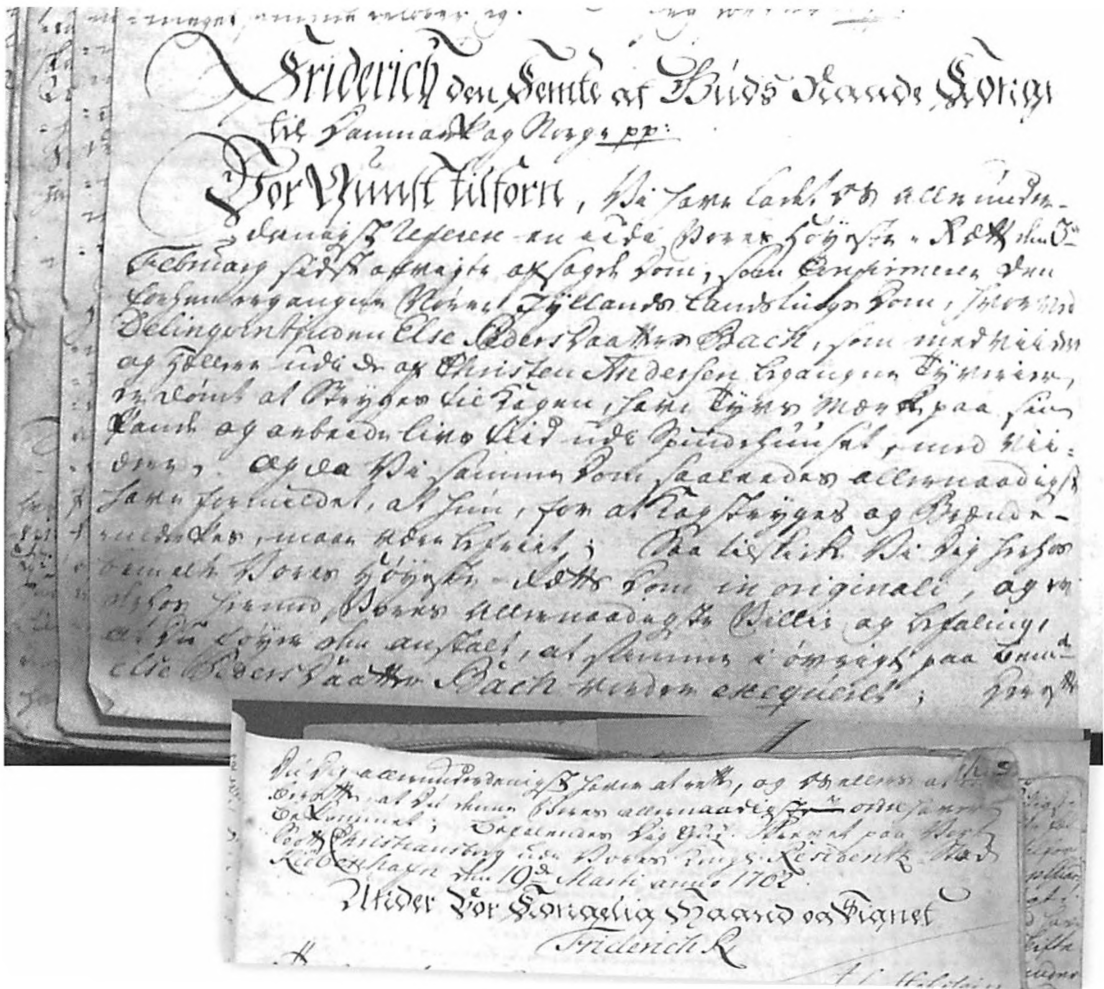 Friderich den Femte af Guds Naade Konge
til Danmark og Norge pp:
Vor Gunst tilforn, Vi have ladet os allerunder-
danigst referere en udi Vores Höyeste-Rett den 3
February sidst afvigte afsagde Dom, som confirmerer den
forhen ergangne Nörre Jyllands Landstings Dom, hvorved
Delinqventinden Else Peders Daatter Bach, som medviider
og Hællere udi de af Christen Andersen begangne Tyverier,
er dömt at Stryges til Kagen, have Tyvs Mærke paa sin
Pande og arbeide livs tiid udi Spindehuuset, med vii-
dere. Og da Vi samme Dom saaledes allernaadigst
have formildet, at hun, for at Kagstryges og Brænde-
mærkes, maae være befriet; Saa tilskikke Vi Dig herhos
bemelte Vores Höyeste-Retts Dom in originali, og er
herved Vores allernaadigste Villie og befaling,
at Du föyer den anstalt, at samme i övrigt paa bem
Else Peders Daatter Bach vorder exeqveret;
Du Dig allerunderdanigst haver at rette, og os allerund
at Du denne Vores allernaadigste ordre haver
bekommet; Befalendes Dig Gud. Skrevet paa Vort
Slott Christiansborg udi Vores Kongl. Residentz Stad
Kiöbenhafn den 19de Marti anno 1762
Under Vor Kongelig Haand og Signet
Friderich R